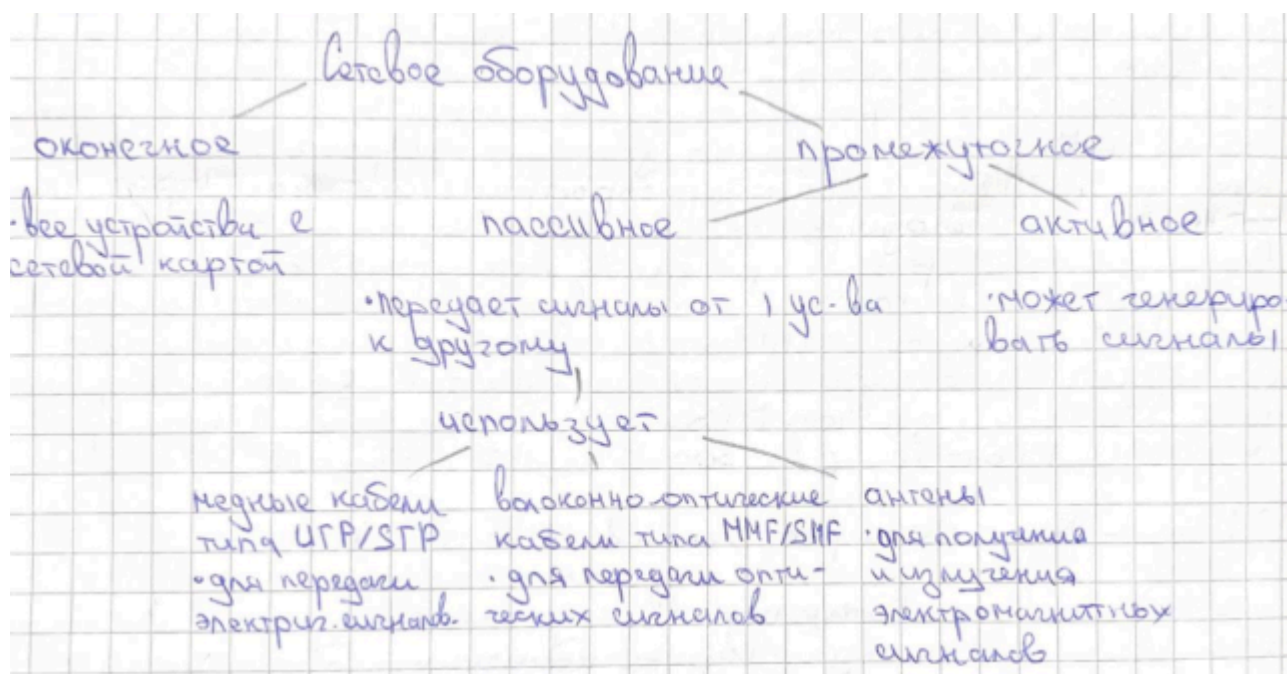 Сетевое оборудование
оконечное
промежуточное
·все устройства с
сетевой картой
пассивное
активное
·передает сигналы от 1 ус-ва
к другому
·может генериро
вать сигналы
использует
медные кабели
типа UTP/STP
·для передачи
электрич. сигналов.
волоконно-оптические
кабели типа MMF/SMF
·для передачи опти-
ческих сигналов
антены
·для получения
и излучения
электромагнитных
сигналов